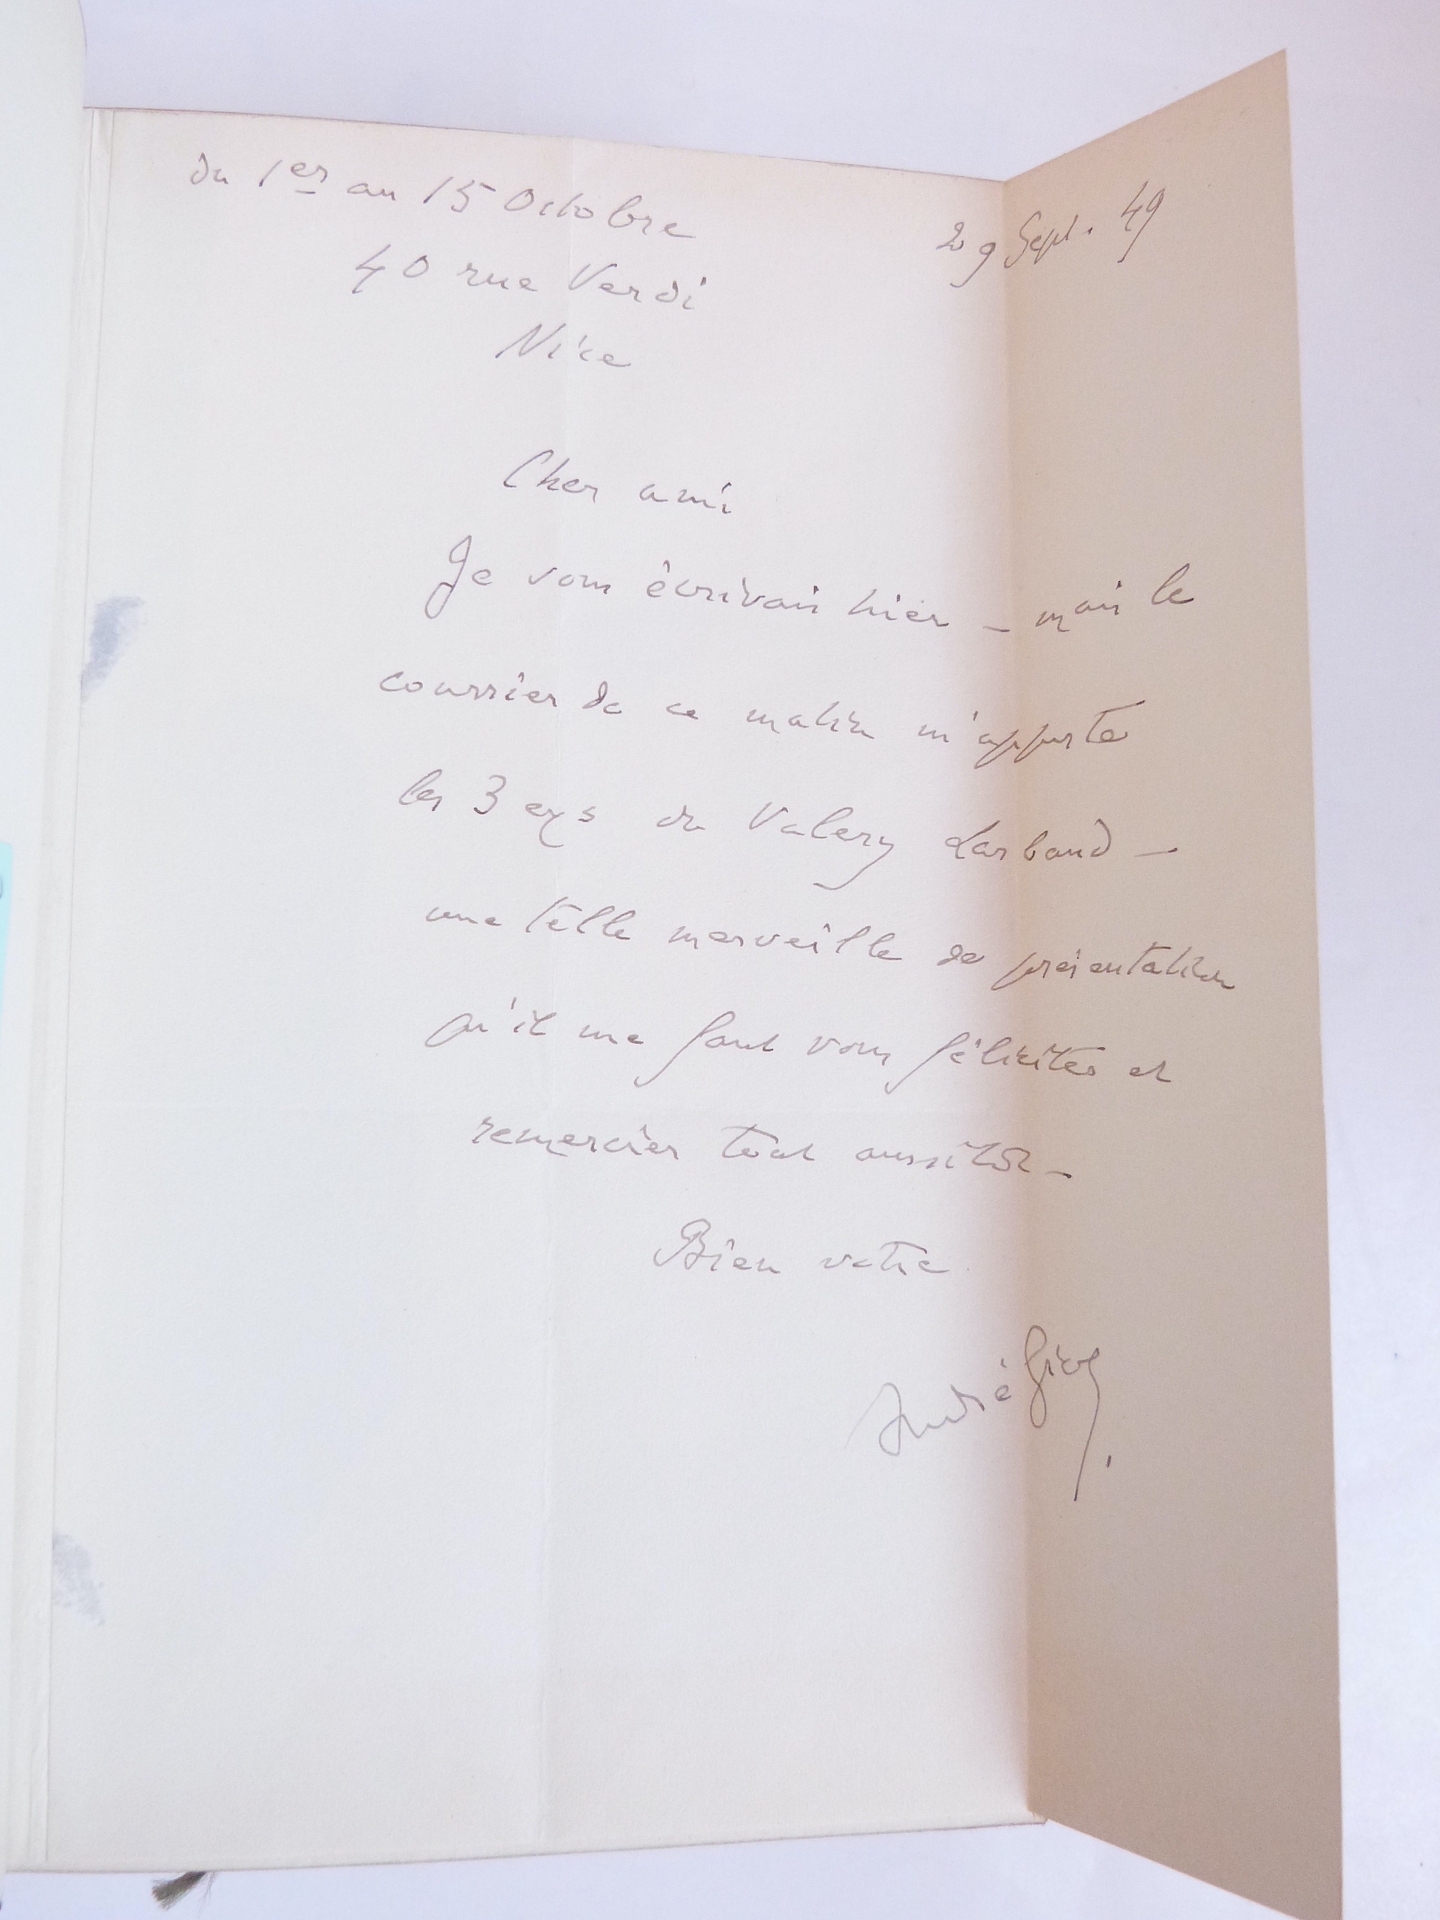 du 1er au 15 Octobre
29 Sept. 49
40 rue Verdi
Nice
Cher ami
Je vous écrivais hier – mais le
courrier de ce matin m'apporte
les 3 exs du Valery Larbaud –
une telle merveille de présentation
qu'il me faut vous féliciter et
remercier tout aussitôt –
Bien votre
André Gide.